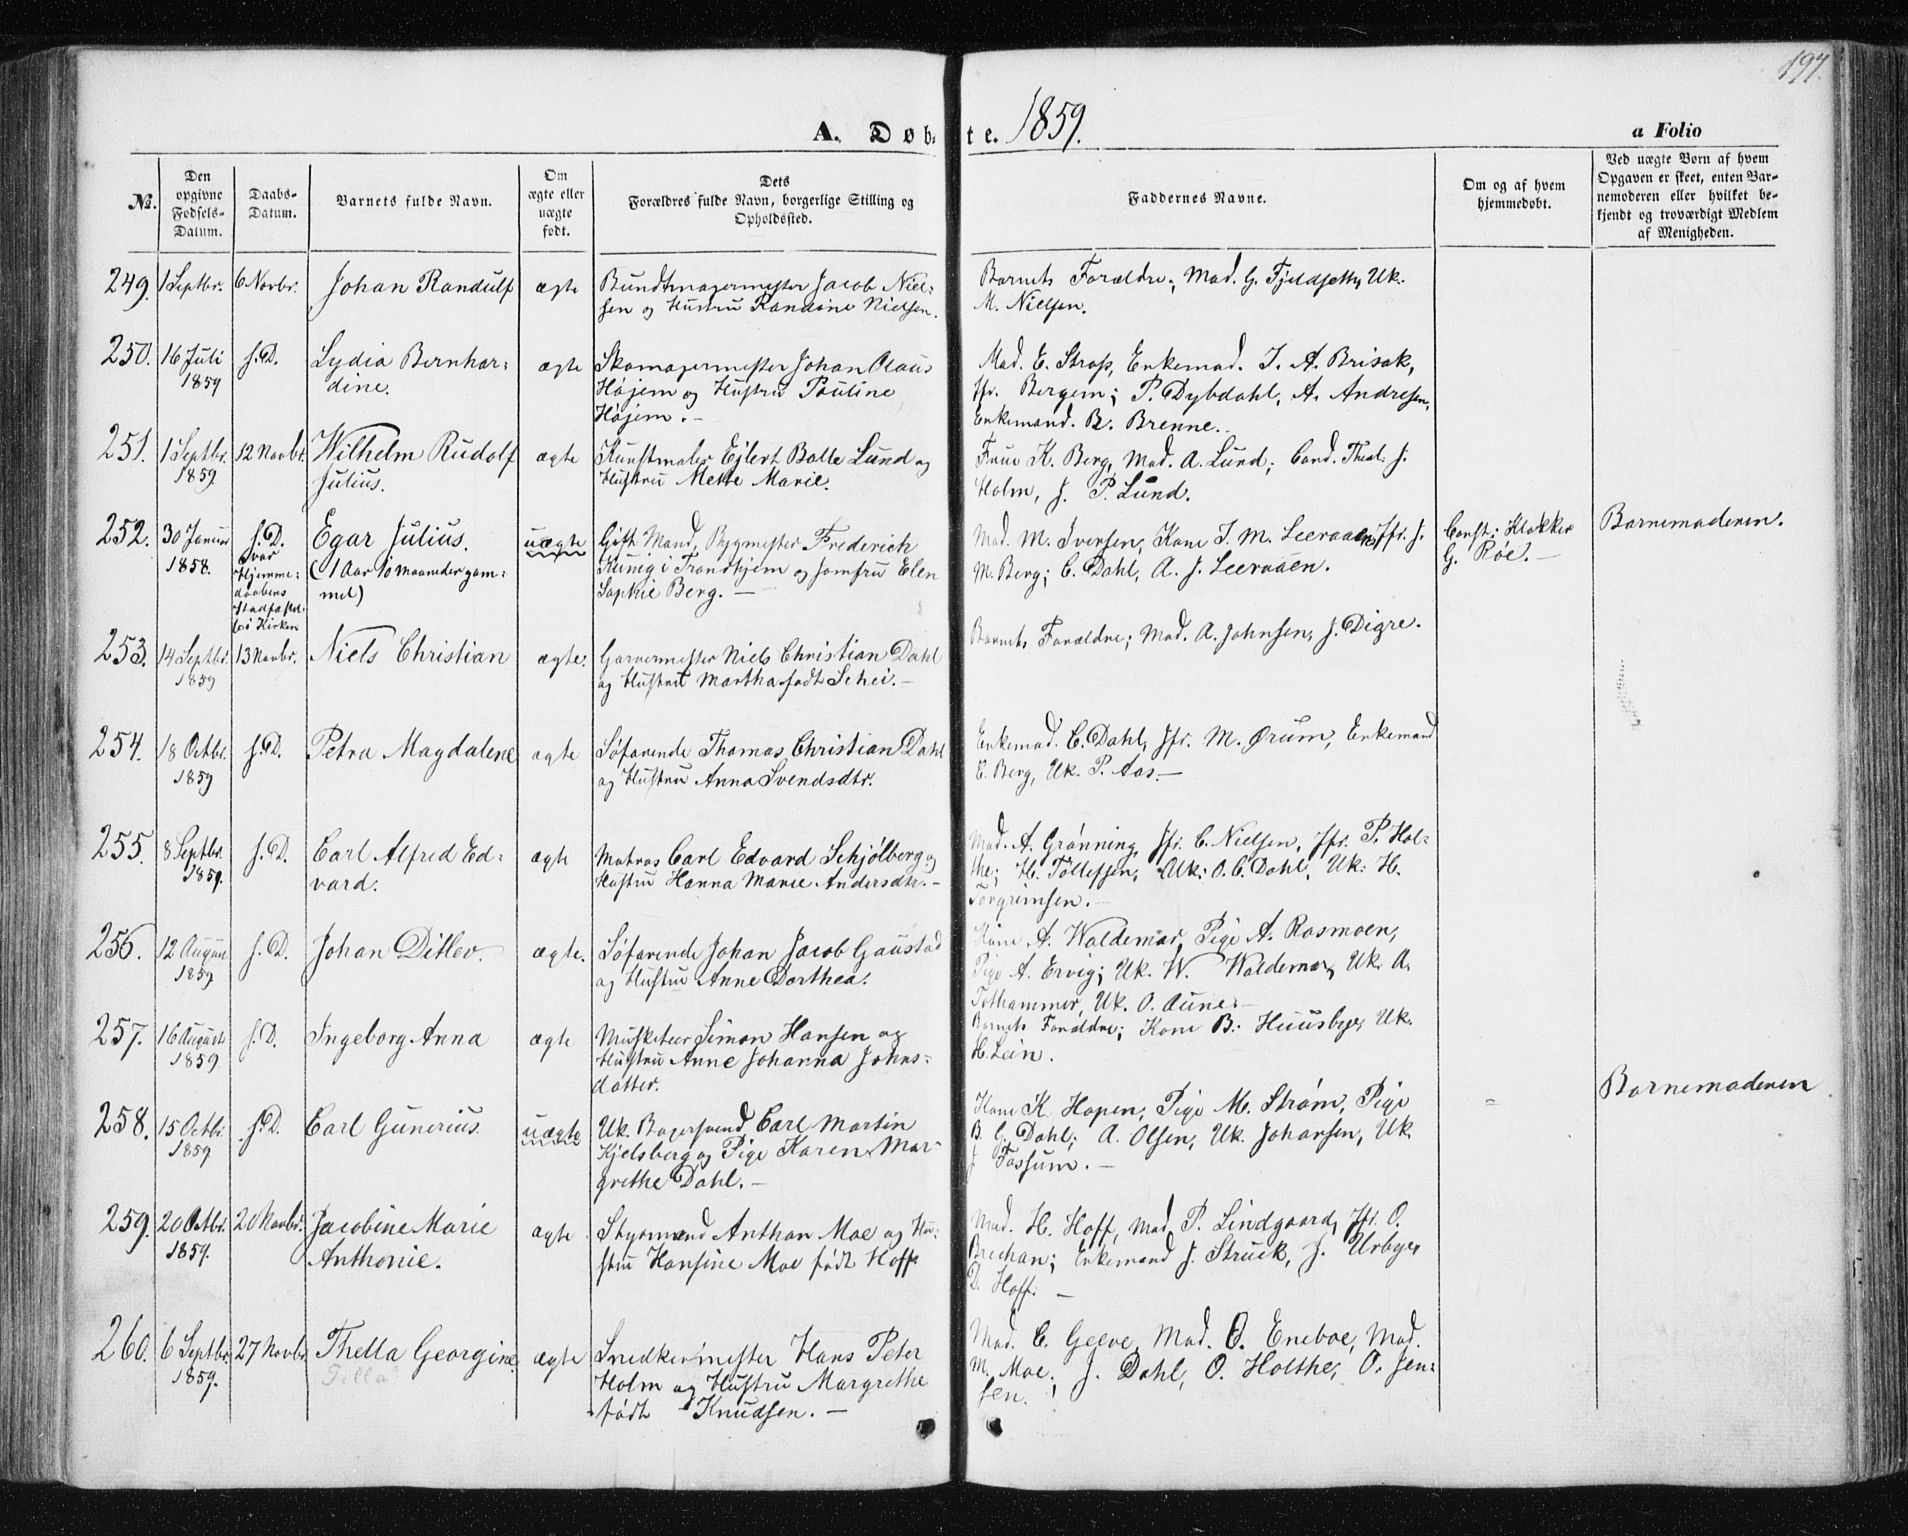 197.
A. Døbte. 1859.
a Folio
№.
Den opgivne Fødsels-Datum.
Daabs-Datum.
Barnets fulde Navn.
Om ægte eller uægte født.
Dets Forældres fulde Navn, borgerlige Stilling og Opholdssted.
Faddernes Navne.
Om og af hvem hjemmedøbt.
Ved uægte Børn af hvem Opgaven er skeet, enten Barnemoderen eller hvilket bekjendt og troværdigt Medlem af Menigheden.
249. 1 Septbr. 6 Novbr. Johan Randulf ægte Bundtmagermester Jacob Niel-
sen og Hustru Randine Nielsen.
Barnets Forældre; Mad. G. Fjeldseth, Uk.
M. Nielsen.
250. 16 Juli 1859 s. D. Lydia Bernhar-
dine. ægte Skomagermester Johan Olaus
Højem og Hustru Pauline
Højem.-
Mad. E. Strøp, Enkemad. I. A. Brisak,
Jfr. Bergem; P. Dybdahl, A. Andresen,
Enkemand. B. Brenne.-
251. 1 Septbr. 1859 12 Novbr. Wilhelm Rudolf
Julius. ægte Kunstmaler Ejlert Balle Lund og
Hustru Mette Marie.
Frue K. Berg, Mad. A. Lund; Cand. Theol. J.
Holm, J. P. Lund.
252. 30 Januar 1858. s. D.
var
Hjemme-
daabens
Stadfæstel-
se i Kirken
Egar Julius.
(1 Aar 10 Maaneder gam-
mel) uægte Gift Mand, Bygmester Frederich
Kunig i Trondhjem og Jomfru Elen
Sophie Berg. -
Mad M. Iversen, Kone I. M. Leeraaen, Jfr. J.
M. Berg; C. Dahl, A. J. Leeraaen.
Const: Klokker
G. Röe.-
Barnemoderen.
253. 14 Septbr. 1859 13 Novbr. Niels Christian ægte. Garvermester Niels Christian Dahl
og Hustru Martha født Schei.-
Barnets Forældre; Mad. A. Johnsen, J. Digre.
254. 18 Octbr. 1859 s. D. Petra Magdalene ægte Søfarende Thomas Christian Dahl
og Hustru Anna Svendsdtr.
Enkemad. C. Dahl, Jfr. M. Ørum, Enkemand
E. Berg, Uk. P. Aas.-
255. 8 Septbr. 1859. s. D. Carl Alfred Ed-
vard. ægte Matros Carl Edvard Schjølberg og
Hustru Hanna Marie Andersdtr.-
Mad. A. Grønning, Jfr. C. Nielsen, Jfr. P. Hol-
the; H. Tollefsen, Uk: O. C. Dahl, Uk: H.
Torgrimsen.-
256. 12 August 1859 s. D. Johan Ditlev. ægte. Søfarende Johan Jacob Gaustad
og Hustru Anne Dorthea.
Kone A. Waldemar, Pige A. Rosmoen,
Pige A. Ervig; Uk. W. Waldemar, Uk. A.
Tolhammer, Uk. O. Aune.-
257. 16 August 1859 s. D. Ingeborg Anna ægte Musketeer Simon Hansen og
Hustru Anne Johanna Johns-
datter.
Barnets Forældre; Kone B. Huusbye, Uk.
H. Lein.
258. 15 Octbr 1859 s. D. Carl Gunerius. uægte Uk. Bagersvend Carl Martin
Kjelsberg og Pige Karen Mar-
grethe Dahl.-
Kone K. Hopen, Pige M. Strøm, Pige
B. G. Dahl; A. Olsen, Uk. Johansen, Uk.
J. Fossum.-
Barnemoderen
259. 20 Octbr. 1859. 20 Novbr. Jacobine Marie
Anthonie. ægte Styrmand Anthon Moe og Hu-
stru Hansine Moe født Hoff.
Mad. H. Hoff, Mad. P. Lindgaard, Jfr. O.
Brechan; Enkemand J. Struck, J. Urbye,
D. Hoff. -
260. 6 Septbr. 1859. 27 Novbr. Thella Georgine
Tella ægte Snedkermester Hans Peter
Holm og Hustru Margrethe
født Knudsen. -
Mad. C. Geeve, Mad. O. Eneboe, Mad.
M. Moe; J. Dahl, O. Holthe, O. Jen-
sen.